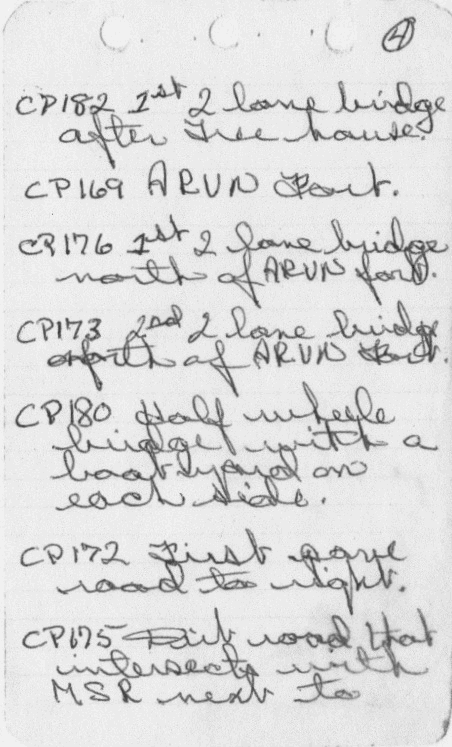 4
CP182 1st 2 lane bridge
after Tree house.
CP169 ARVN Fort.
CP176 1st 2 lane bridge
north of ARVN fort.
CP173 2nd 2 lane bridge
north of ARVN Fort.
CP180 Half whele
bridge with a
boat yard on
each side.
CP172 First pave
road to right.
CP175 Dirt road that
intersects with
MSR next to